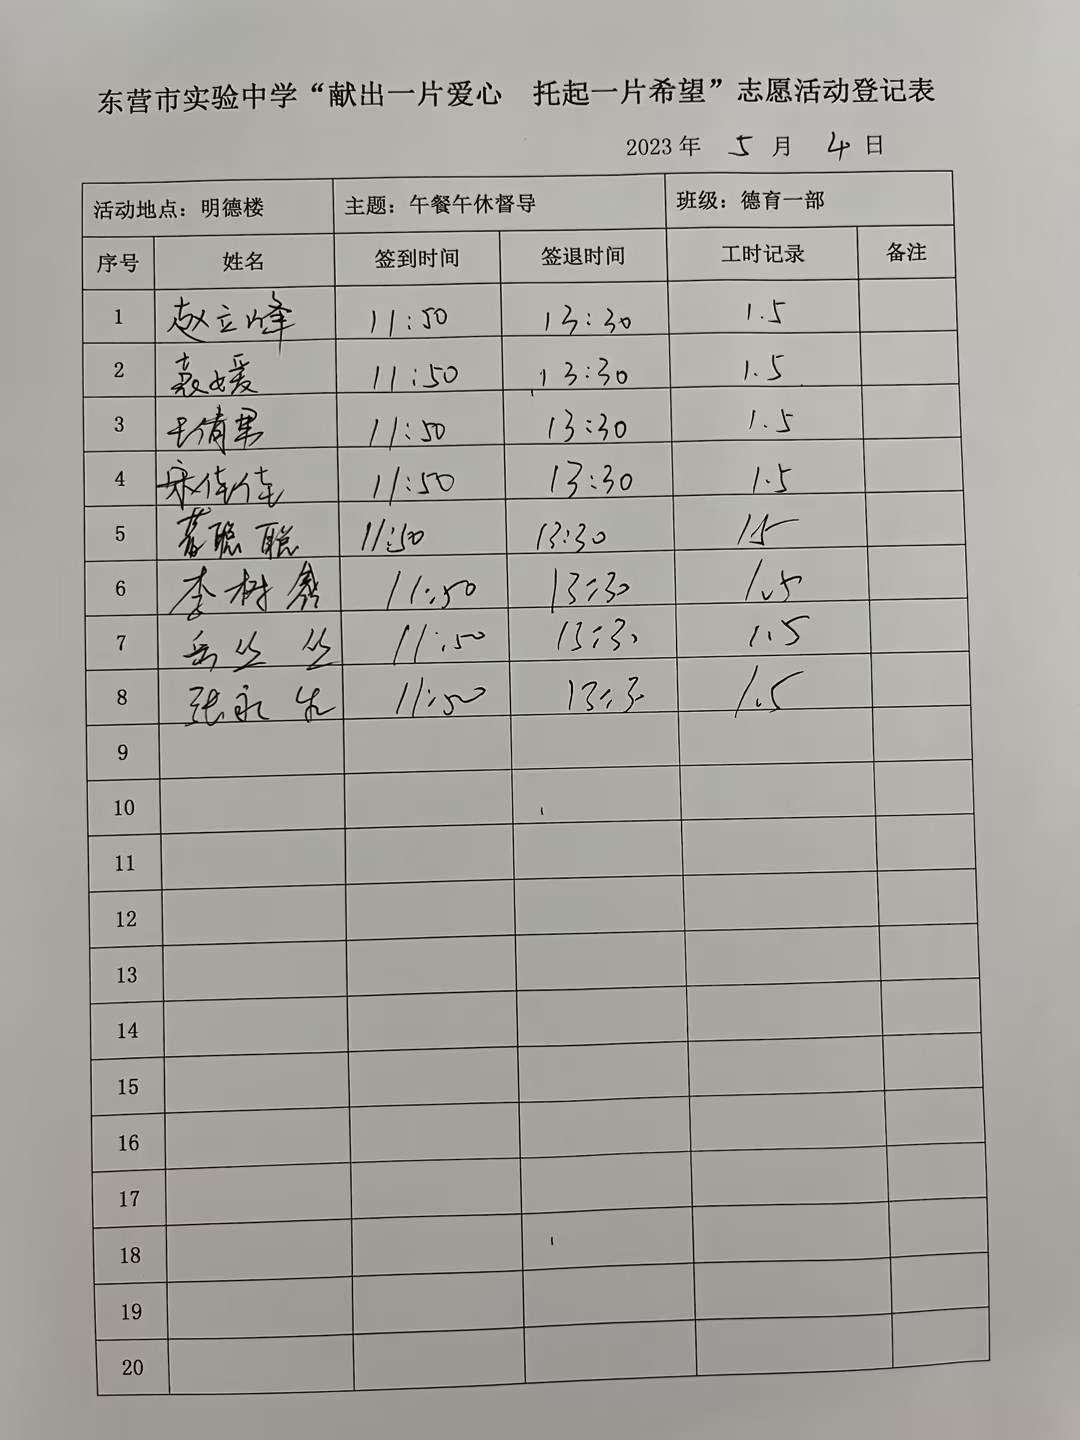 东营市实验中学“献出一片爱心 托起一片希望”志愿活动登记表
2023 年 5 月 4 日
活动地点：明德楼 主题：午餐午休督导 班级：德育一部
序号 姓名 签到时间 签退时间 工时记录 备注
1 赵立峰 11:50 13:30 1.5
2 袁媛 11:50 13:30 1.5
3 王倩男 11:50 13:30 1.5
4 宋佳佳 11:50 13:30 1.5
5 聪聪 11:50 13:30 1.5
6 李树鑫 11:50 13:30 1.5
7 岳丛丛 11:50 13:30 1.5
8 张永生 11:50 13:30 1.5
9
10
11
12
13
14
15
16
17
18
19
20